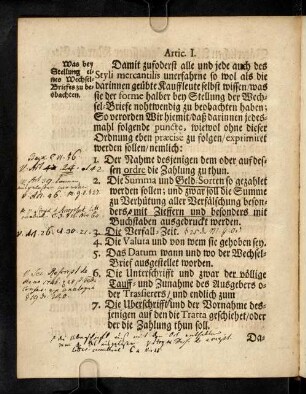 Artic. I.
Was bey
Stellung ei-
nes Wechsel-
Briefes zu be-
obachten.
Damit zuforderst alle und jede auch des
Styli mercantilis unerfahrne so wol als die
darinnen geübte Kauffleute selbst wissen/ was
sie der forme halber bey Stellung der Wech-
sel-Briefe nohtwendig zu beobachten haben;
So verorden Wir hiemit/ daß darinnen jedes-
mahl folgende puncte, wiewol ohne dieser
Ordnung eben præcise zu folgen/ exprimiret
werden sollen/ nemlich:
1. Der Nahme desjenigen dem oder auf des-
sen ordre die Zahlung zu thun.
2. Die Summa und Geld-Sorten so gezahlt
werden sollen; und zwar soll die Summe
zu Verhütung aller Verfälschung beson-
ders mit Zieffern und besonders mit
Buchstaben ausgedruckt werden.
3. Die Verfall-Zeit.
4. Die Valuta und von wem sie gehoben sey.
5. Das Datum wann und wo der Wechsel-
Brief ausgestellet worden.
6. Die Unterschrifft und zwar der völlige
Tauff- und Zunahme des Ausgebers o-
der Trassierers/ und endlich zum
7. Die Überschrifft/ und der Vornahme des-
jenigen auf den die Tratta geschiehet/ oder
der die Zahlung thun soll.
Da-